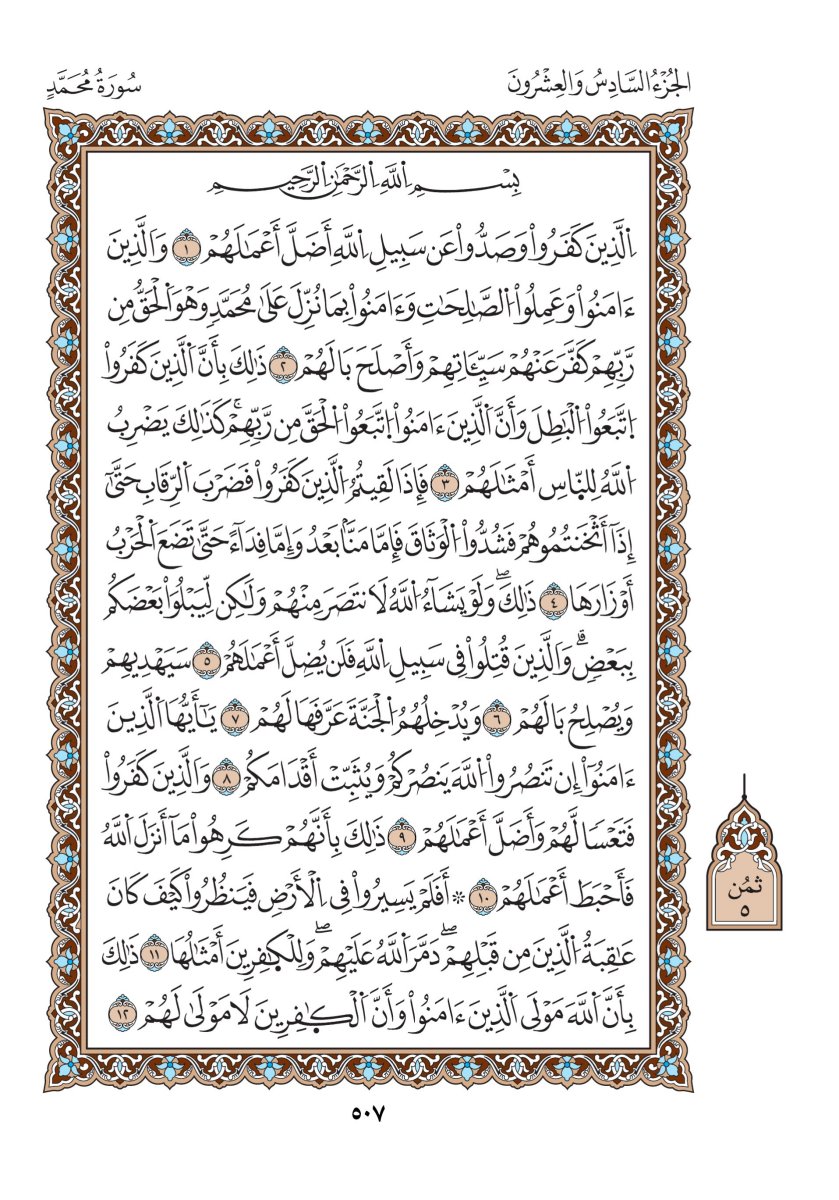 الجُزْءُ السَّادِسُ وَالعِشْرُونَ سُورَةُ مُحَمَّدٍ
بِسْمِ اِللَّهِ اِلرَّحْمَٰنِ اِلرَّحِيمِ
اِلَّذِينَ كَفَرُواْ وَصَدُّواْ عَن سَبِيلِ اِللَّهِ أَضَلَّ أَعْمَٰلَهُمْ ١ وَالَّذِينَ
ءَامَنُواْ وَعَمِلُواْ اُلصَّٰلِحَٰتِ وَءَامَنُواْ بِمَا نُزِّلَ عَلَىٰ مُحَمَّدٖ وَهْوَ اَلْحَقُّ مِن
رَّبِّهِمْ كَفَّرَ عَنْهُمْ سَيِّـَٔاتِهِمْ وَأَصْلَحَ بَالَهُمْ ٢ ذَٰلِكَ بِأَنَّ اَلَّذِينَ كَفَرُواْ
اُتَّبَعُواْ اُلْبَٰطِلَ وَأَنَّ اَلَّذِينَ ءَامَنُواْ اُتَّبَعُواْ اُلْحَقَّ مِن رَّبِّهِمْۚ كَذَٰلِكَ يَضْرِبُ
اُللَّهُ لِلنَّاسِ أَمْثَٰلَهُمْ ٣ فَإِذَا لَقِيتُمُ اُلَّذِينَ كَفَرُواْ فَضَرْبَ اَلرِّقَابِ حَتَّىٰٓ
إِذَآ أَثْخَنتُمُوهُمْ فَشُدُّواْ اُلْوَثَاقَ فَإِمَّا مَنَّۢا بَعْدُ وَإِمَّا فِدَآءً حَتَّىٰ تَضَعَ اَلْحَرْبُ
أَوْزَارَهَا ٤ ذَٰلِكَۖ وَلَوْ يَشَآءُ اُللَّهُ لَانتَصَرَ مِنْهُمْ وَلَٰكِن لِّيَبْلُوَاْ بَعْضَكُم
بِبَعْضٖۗ وَالَّذِينَ قُتِلُواْ فِي سَبِيلِ اِللَّهِ فَلَن يُضِلَّ أَعْمَٰلَهُمْ ٥ سَيَهْدِيهِمْ
وَيُصْلِحُ بَالَهُمْ ٦ وَيُدْخِلُهُمُ اُلْجَنَّةَ عَرَّفَهَا لَهُمْ ٧ يَٰٓأَيُّهَا اَلَّذِينَ
ءَامَنُوٓاْ إِن تَنصُرُواْ اُللَّهَ يَنصُرْكُمْ وَيُثَبِّتْ أَقْدَامَكُمْ ٨ وَالَّذِينَ كَفَرُواْ
فَتَعْسٗا لَّهُمْ وَأَضَلَّ أَعْمَٰلَهُمْ ٩ ذَٰلِكَ بِأَنَّهُمْ كَرِهُواْ مَآ أَنزَلَ اَللَّهُ
فَأَحْبَطَ أَعْمَٰلَهُمْ ١٠ * أَفَلَمْ يَسِيرُواْ فِي اِلْأَرْضِ فَيَنظُرُواْ كَيْفَ كَانَ
عَٰقِبَةُ اُلَّذِينَ مِن قَبْلِهِمْۖ دَمَّرَ اَللَّهُ عَلَيْهِمْۖ وَلِلْكٰ۪فِرِينَ أَمْثَٰلُهَا ١١ ذَٰلِكَ
بِأَنَّ اَللَّهَ مَوْلَى اَلَّذِينَ ءَامَنُواْ وَأَنَّ اَلْكٰ۪فِرِينَ لَا مَوْلَىٰ لَهُمْ ١٢
ثُمُن
٥
٥٠٧